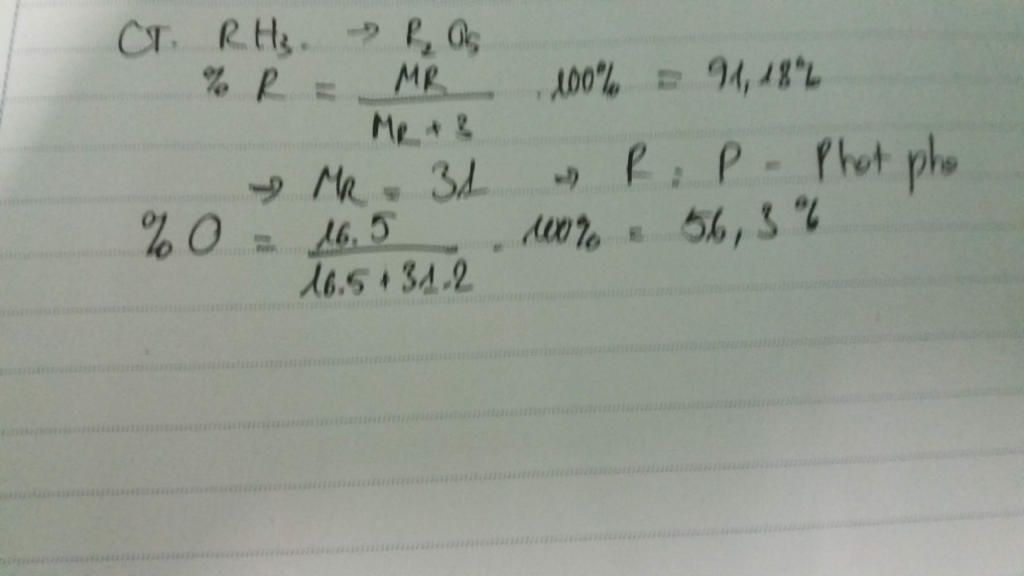 CT. RH₃. → R₂O₅
% R = MR / MR + 3 . 100% = 91,18%
→ MR = 31 → R : P - Phot pho
% O = 16.5 / 16.5 + 31.2 . 100% = 56,3%